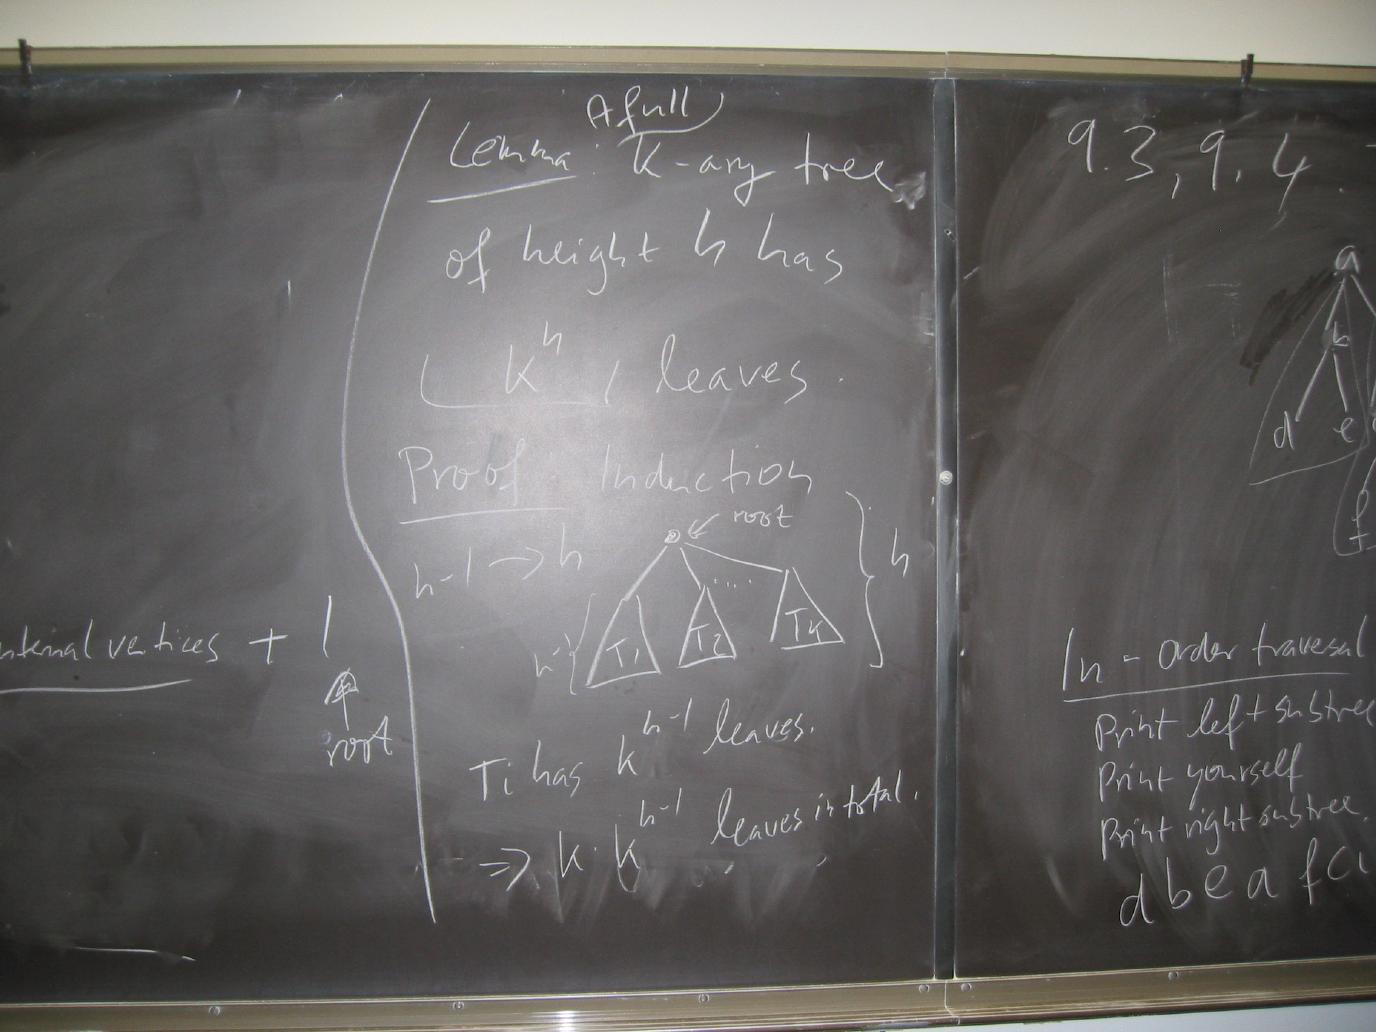 internal vertices + 1
root
A full
Lemma: K-ary tree
of height h has
K^h leaves.
Proof Induction
h-1 → h
root
h
h-1
T1 T2 .... TK
Ti has k^h-1 leaves.
⇒ k·k^h-1 leaves in total.
9.3, 9.4
a
b
d e
f
In-order traversal
Print left subtree
Print yourself
Print right subtree.
d b e a f c